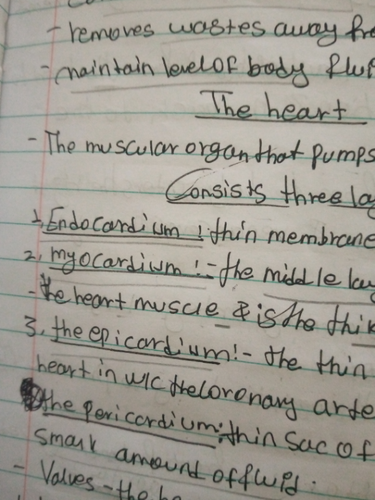 - removes wastes away fr
- maintain level of body flui
The heart
- The muscular organ that pumps
Consists three la
1, Endocardium : thin membrane
2, myocardium :- the middle lay
- the heart muscle & is the thi
3, the epicardium :- the thin
heart in w/c the coronary arte
the pericardium: thin sac of
small amount of fluid.
- Valves - the he